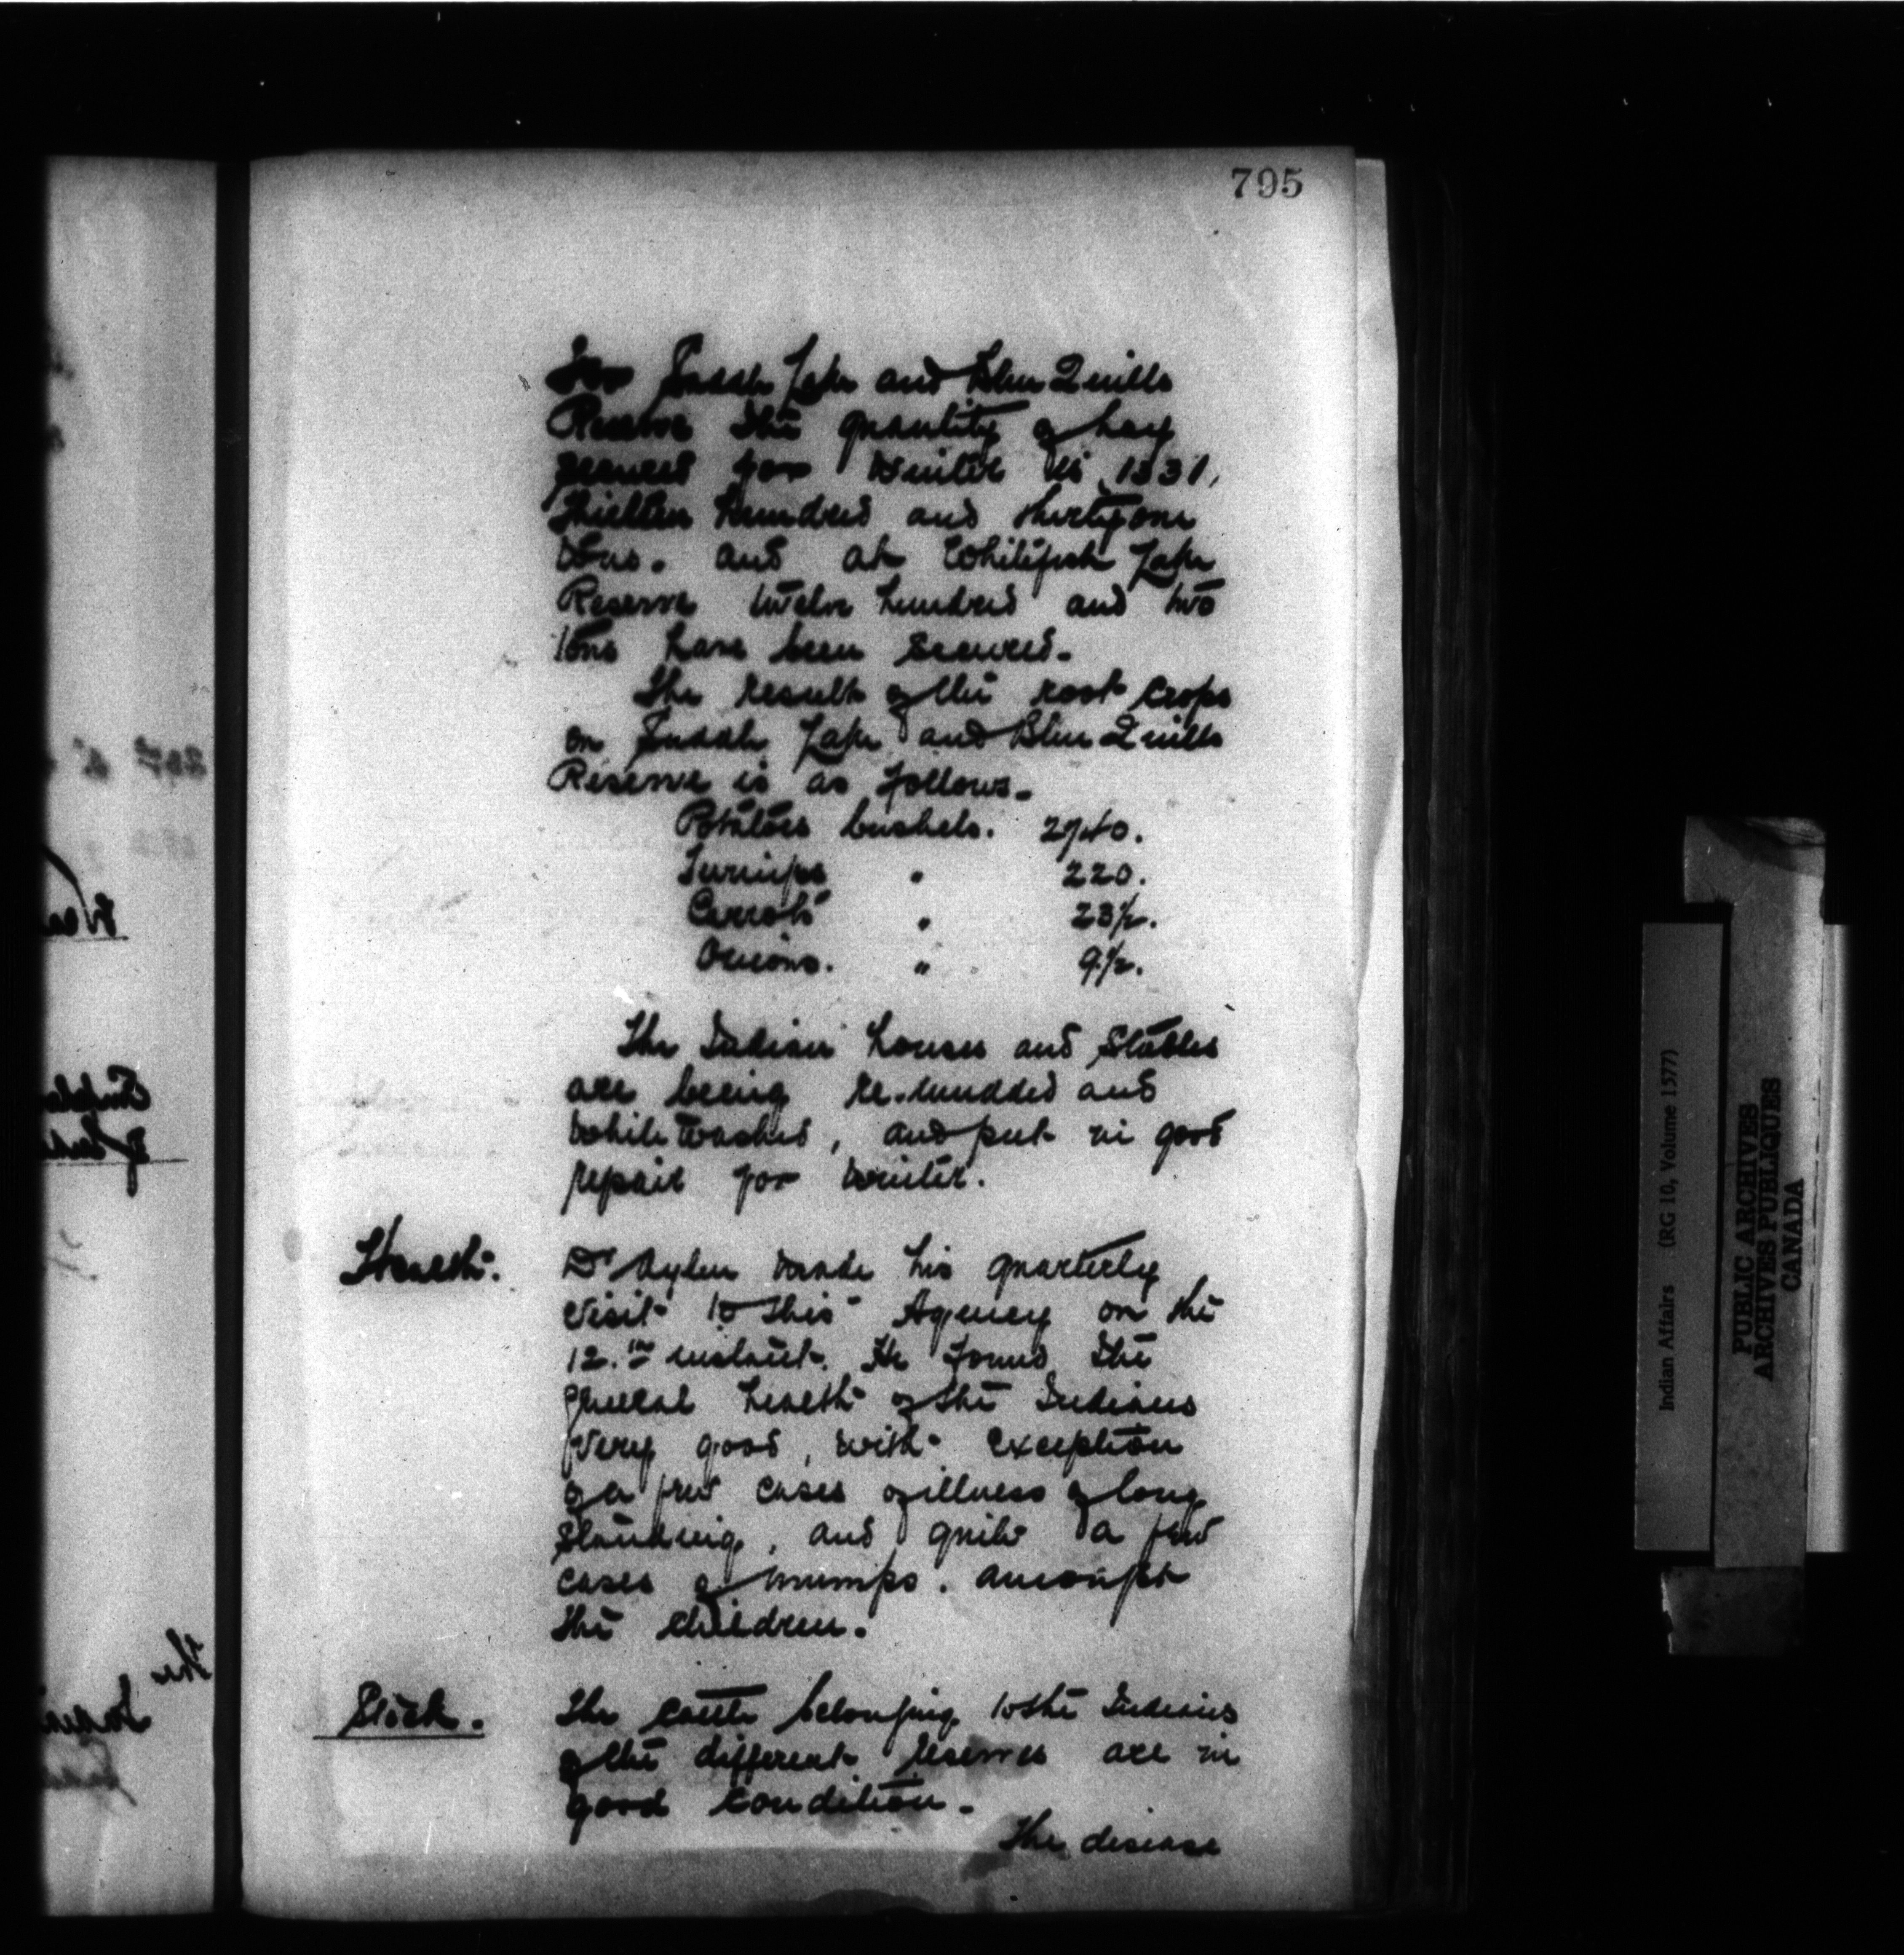 795
For Saddle Lake and Blue Quills
Reserve the quantity of hay
secured for Winter is 1331,
Thirteen hundred and thirty one
tons. and at Whitefish Lake
Reserve twelve hundred and two
tons have been secured.
The result of the root crops
on Saddle Lake and Blue Quills
Reserve is as follows.
Potatoes bushels. 2740.
Turnips " 220.
Carrots " 23½.
Onions. " 9½.
The Indian houses and Stables
are being re-mudded and
White Washed, and put in good
repair for Winter.
Health. Dr Aylen made his quarterly
visit to this Agency on the
12.th instant. He found the
general health of the Indians
very good, with exception
of a few cases of illness of long
standing, and quite a few
cases of mumps. amongst
the children.
Stock. The cattle belonging to the Indians
of the different reserves are in
good condition.
The disease
Indian Affairs (RG 10, Volume 1577)
PUBLIC ARCHIVES
ARCHIVES PUBLIQUES
CANADA